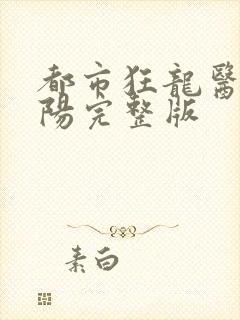 都市狂龍醫
陽完整版
素白